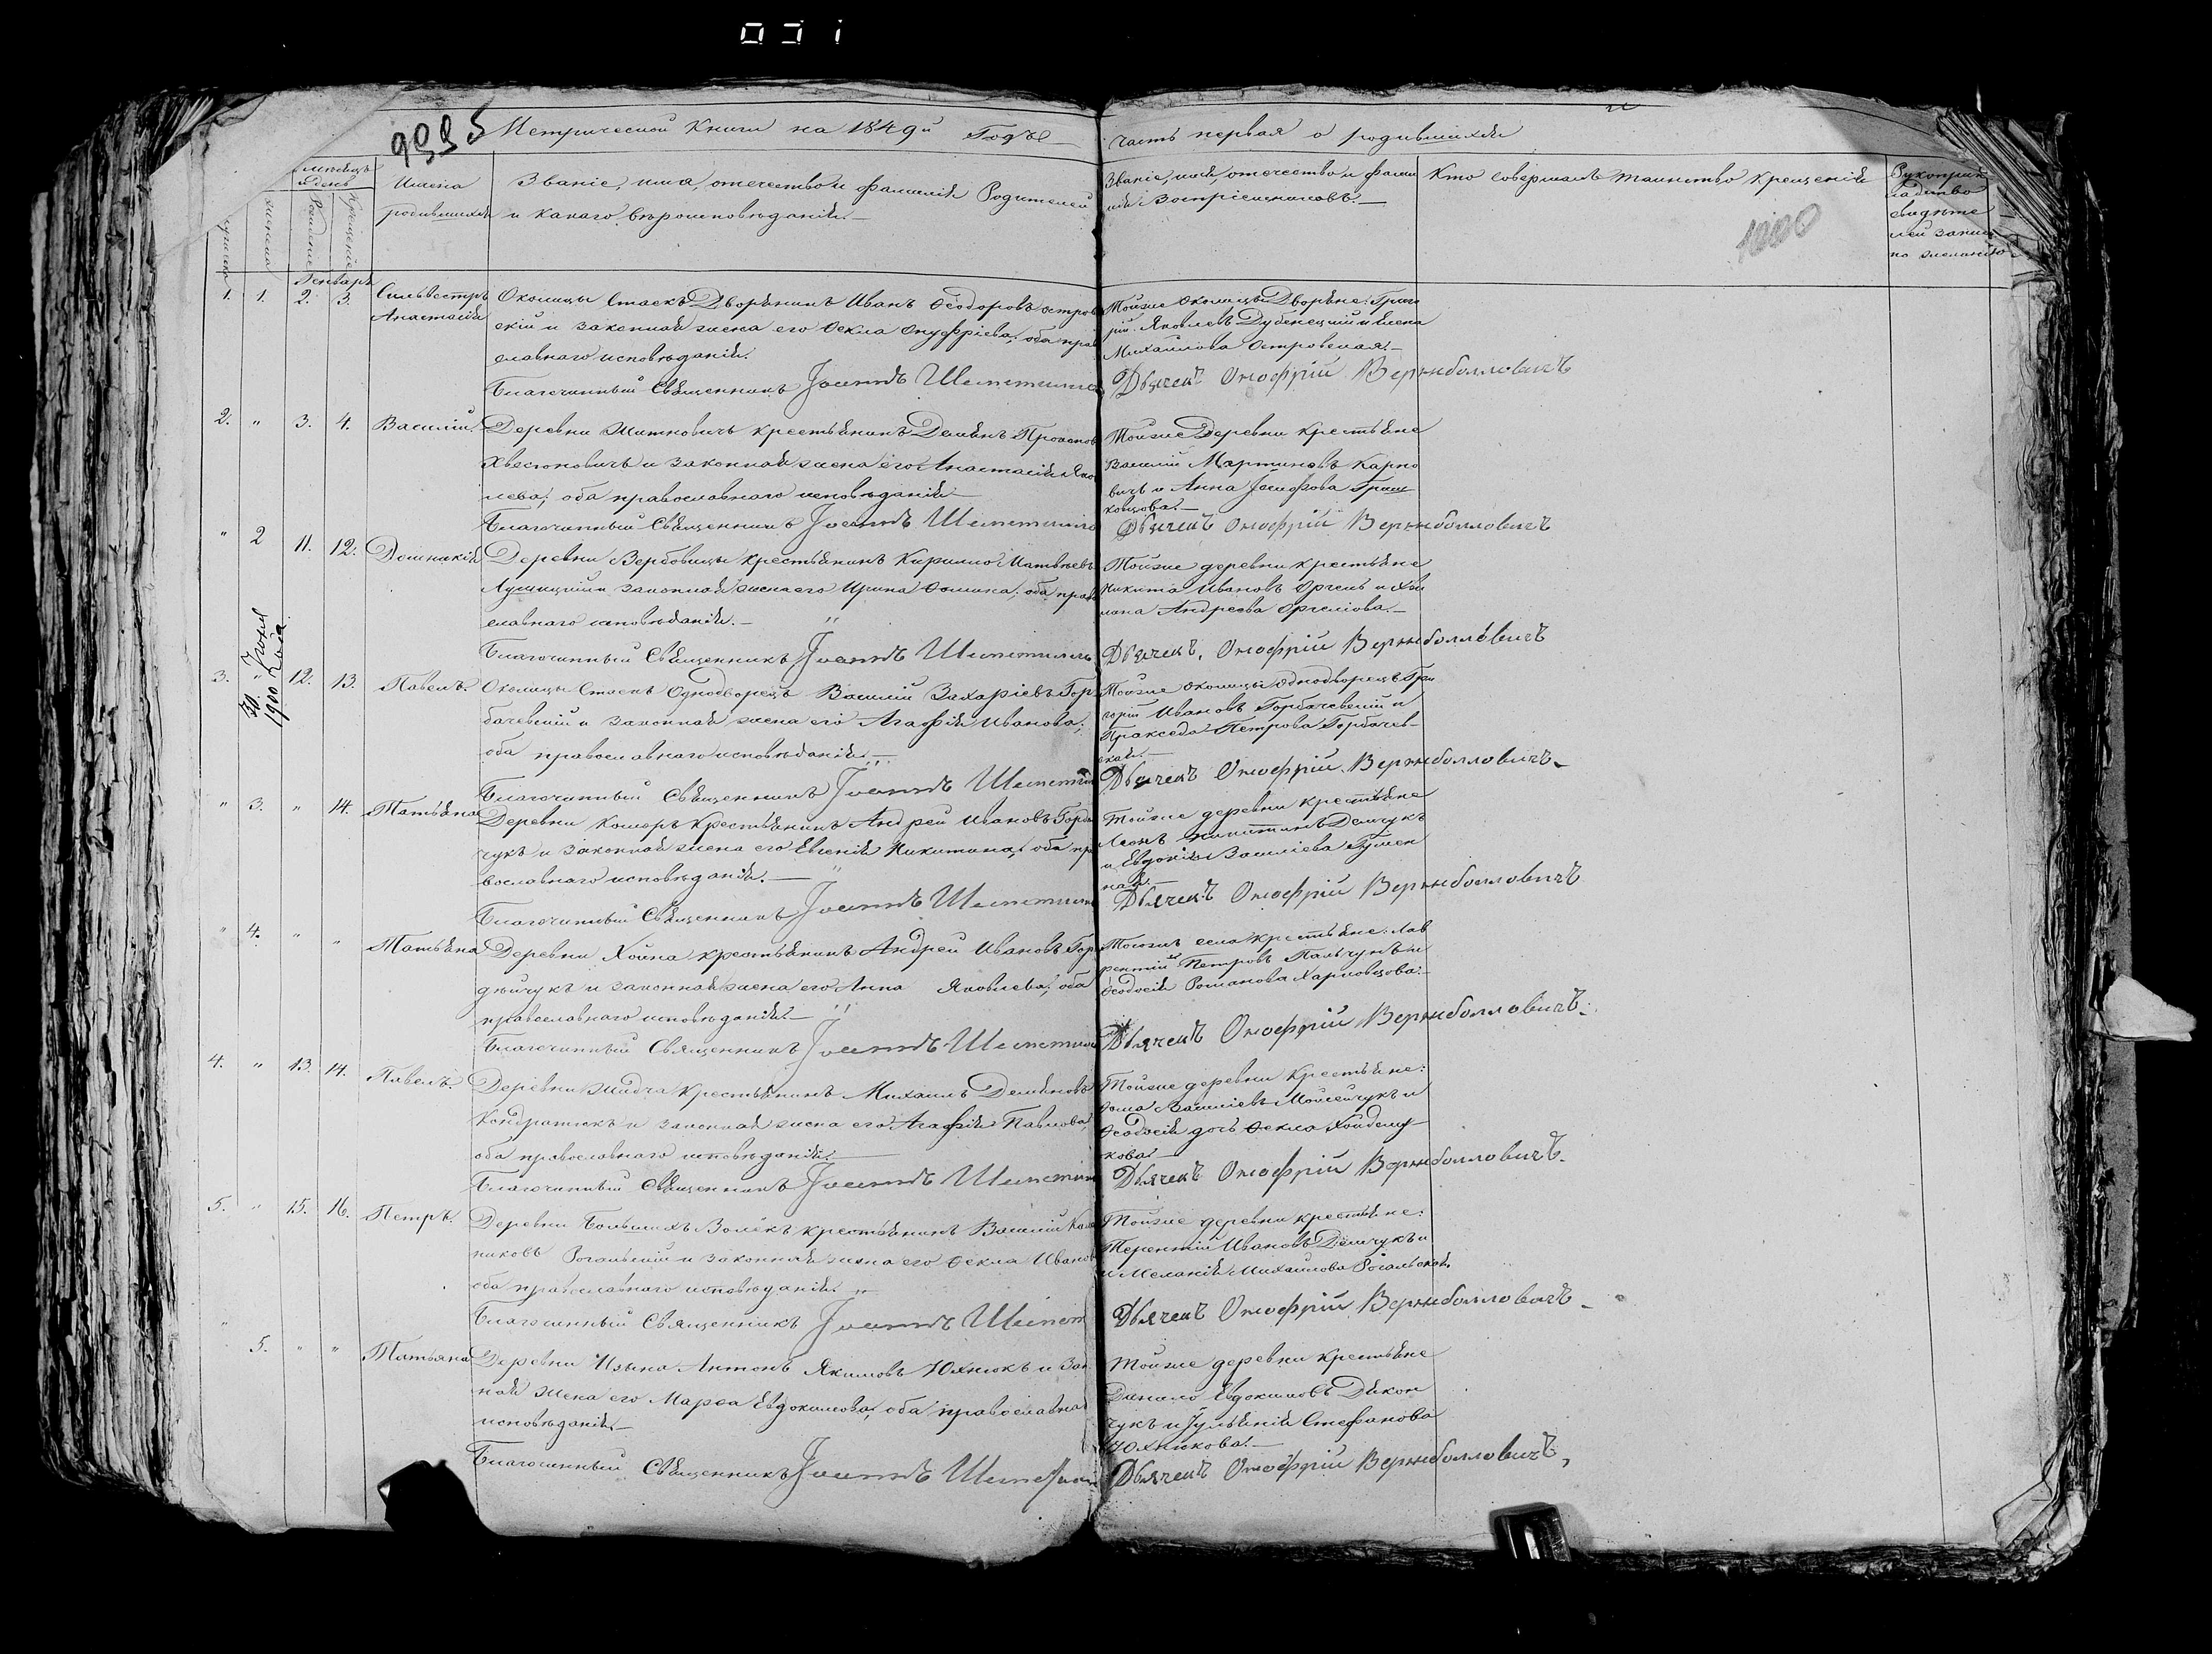 031
9995 Метрической Книги на 1849й Годъ
часть первая о родившихся
Мѣсяцъ и день
Рожденіе
Крещеніе
Имена родившихся
Званіе, имя, отечество и фамилія Родителей
и какаго вѣроисповѣданія.
Званіе, имя, отечество и фами
лія Воспріемниковъ.
Кто совершалъ таинство крещенія
Рукоприк
ладство
свидѣте
лей запис
по желанію
1000
Генварь
1. 1. 2. 3. Сильвестръ Анастасія
Околицы Стаекъ Дворянинъ Иванъ Ѳеодоровъ Остров
скій и законная жена его Ѳекла Онуфріева; оба прав
славнаго исповѣданія.
Благочинный Священникъ Іоаннъ
Тойже околицы Дворяне: Григо
рій Яковлевъ Дубенецкій и Елена
Михайлова Островская.
Дьячекъ Онофрій
2. " 3. 4. Василій.
Деревни Житковичь крестьянинъ Демянъ Прокопов
Хвесюковичъ и законная жена его Анастасія Яко
лева; оба православнаго исповѣданія
Благочинный Священникъ Іоаннъ
Тойже Деревни крестьяне
Василій Мартиновъ Карпо
вичъ и Анна Іосифова Гриш
ковцова.
Дьячекъ Онофрій
" 2 11. 12. Домникія
Деревни Вербовицы крестьянинъ Кирилло Матвѣевъ
законная жена его Ирина Ѳомина; оба право
славнаго исповѣданія.
Благочинный Священникъ Іоаннъ
Тойже деревни крестьяне
Никита Ивановъ
Андреева
Дьячекъ, Онофрій
30. Іюня
1900 года
3. " 12. 13. Павелъ.
Околицы Стаекъ Однодворецъ Василій Захаріевъ Гор
бачевскій и законная жена его Агафія Иванова;
оба православнаго исповѣданія.
Благочинный Священникъ Іоаннъ
Тойже околицы однодворецъ Гри
горій Ивановъ Горбачевскій и
Пракседа Петрова Горбачев
ская.
Дьячекъ Онофрій
" 3. " 14. Татьяна
Деревни Комеръ Крестьянинъ Андрей Ивановъ Горде
чукъ и законная жена его Евгенія Никитина; оба пр
вославнаго исповѣданія.
Благочинный Священникъ Іоаннъ
Тойже деревни крестьяне
Леонъ Никитинъ Демчукъ
и Евдокія Василіева Гумен
ная.
Дьячекъ Онофрій
" 4. " " Татьяна
Деревни Хойна крестьянинъ Андрей Ивановъ Гор
дѣйчукъ и законная жена его Анна Яковлева; оба
православнаго исповѣданія.
Благочинный Священникъ Іоаннъ
села крестьяне: Лав
рентій Петровъ Пальчукъ и
Ѳеодосія Романова
Дьячекъ Онофрій
4. " 13. 14. Павелъ.
Деревни Жидча крестьянинъ Михаилъ Демяновъ
Кондратюкъ и законная жена его Агафія Павлова
оба православнаго исповѣданія.
Благочинный Священникъ Іоаннъ
Тойже деревни крестьяне:
Ѳома Василіевъ Мойсейчукъ и
Ѳеодосія дочь Ѳекла
кова
Дьячекъ Онофрій
5. " 15. 16. Петръ.
Деревни Большихъ Волекъ крестьянинъ Василій
Рогальскій и законная жена его Ѳекла Иванов
оба православнаго исповѣданія.
Благочинный Священникъ Іоаннъ
Тойже деревни крестьяне:
Терентій Ивановъ Демчукъ и
и Меланія Михайлова Рогальская
Дьячекъ Онофрій
" 5. " " Татьяна
Деревни Изына Антонъ Якимовъ Юхнюкъ и зак
ная жена его Марѳа Евдокимова; оба православна
исповѣданія
Благочинный Священникъ Іоаннъ
Тойже деревни крестьяне
Данило Евдокимовъ Дякон
чукъ и Іуліянія Стефанова
Юхнюкова.
Дьячекъ Онофрій